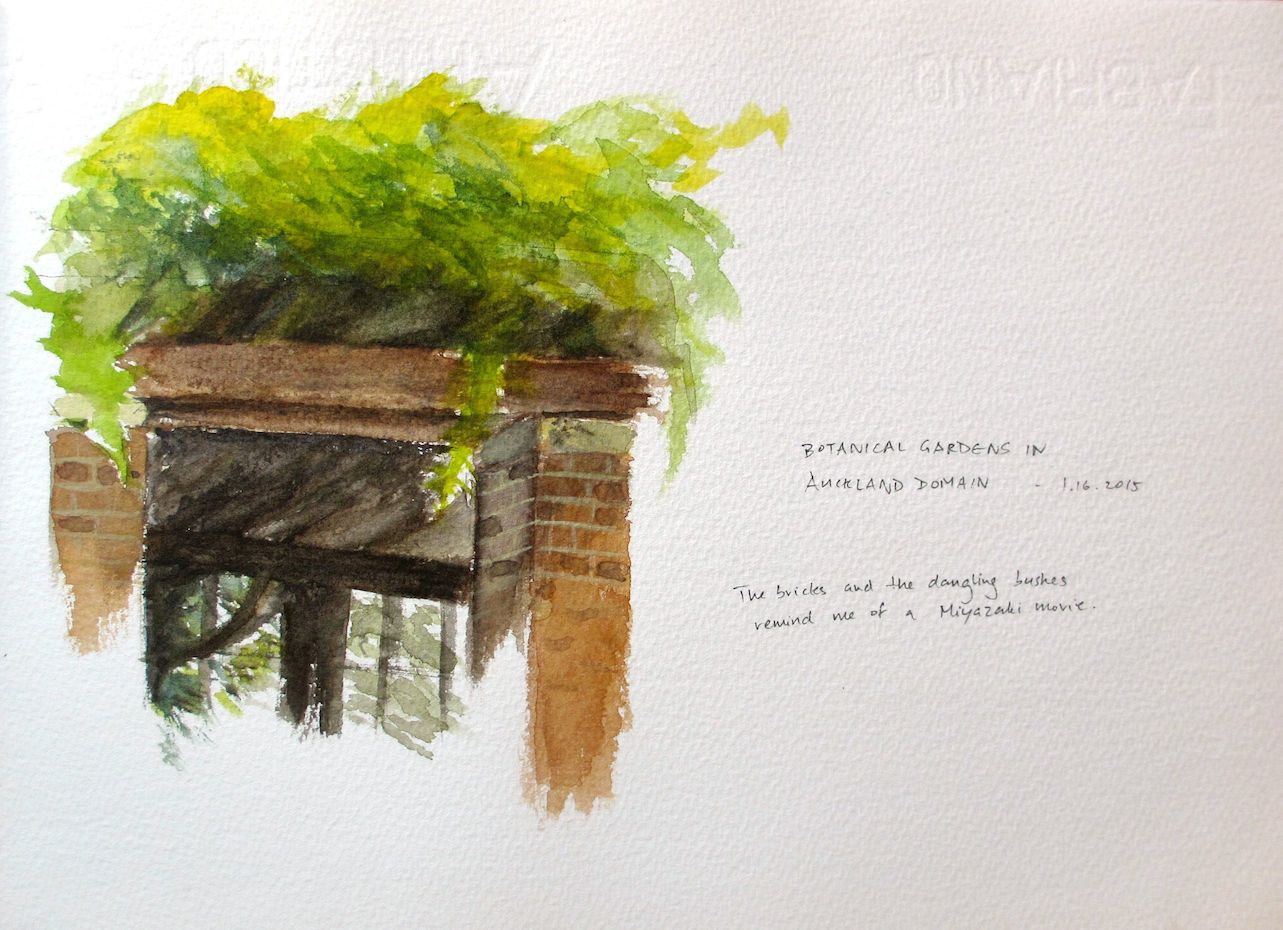 BOTANICAL GARDENS IN
AUCKLAND DOMAIN - 1.16.2015
The bricks and the dangling bushes
remind me of a Miyazaki movie.